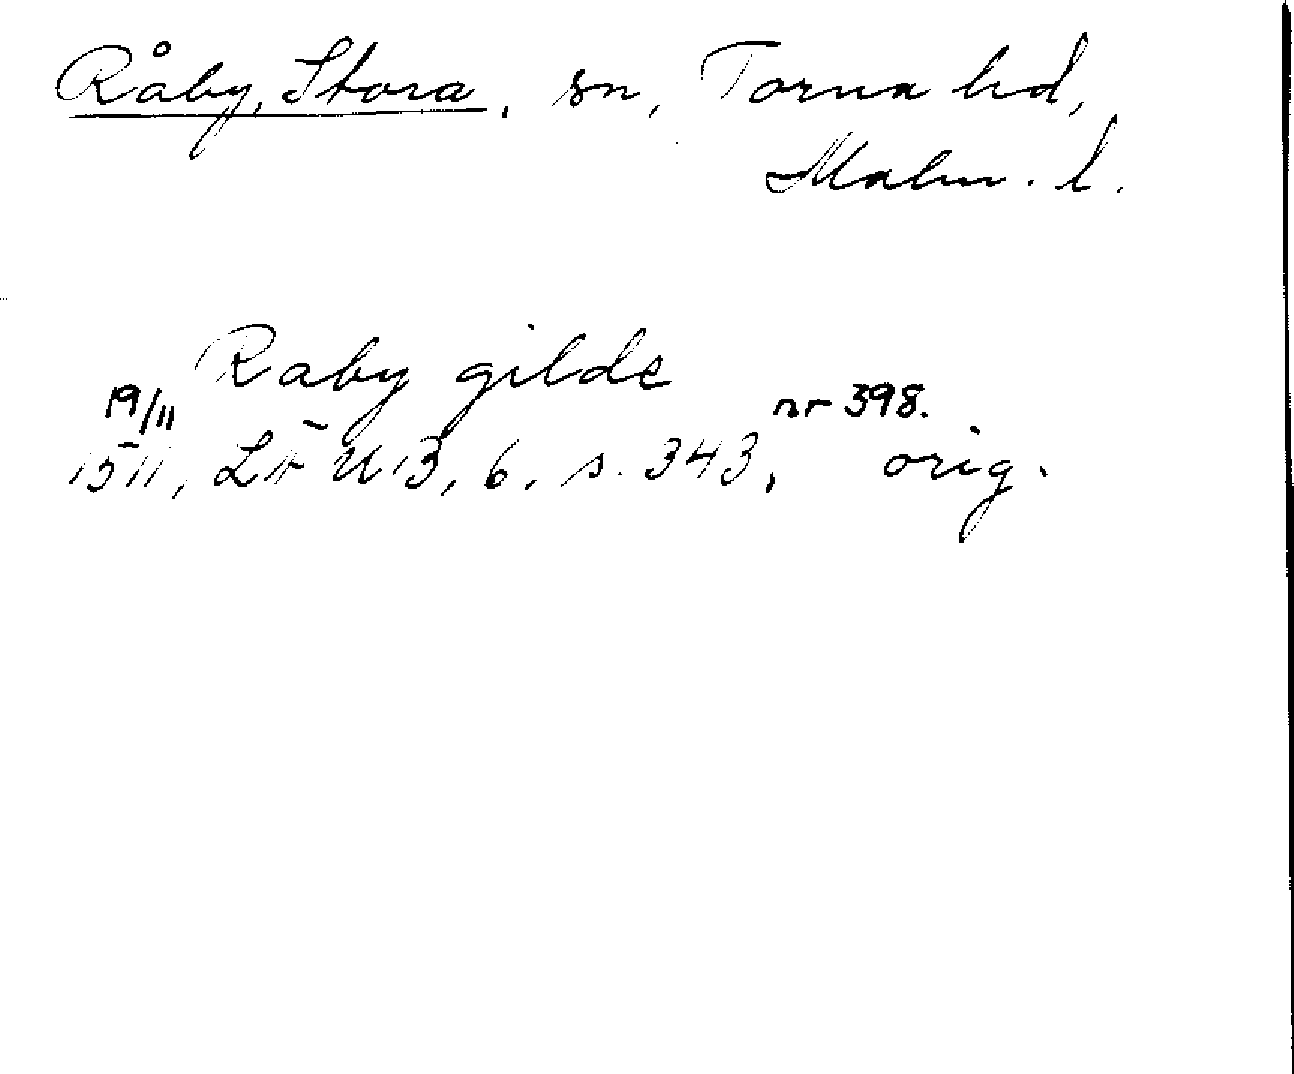 Råby, Stora, sn, Torna hd,
Malm. l.
Raby gilde
19/11 nr 398.
1511, LÄUB, 6, s. 343, orig.